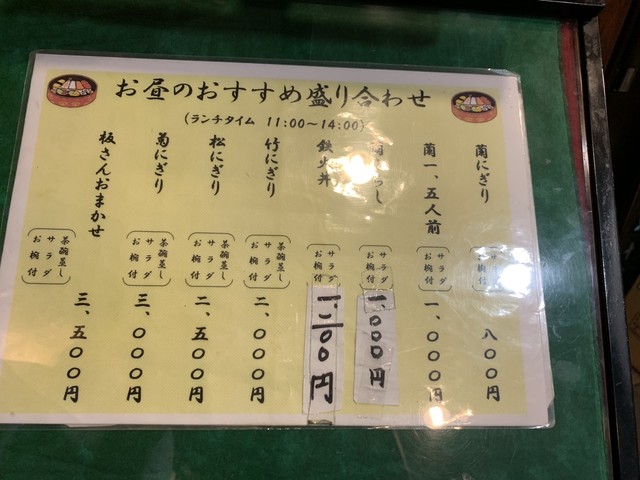 お昼のおすすめ盛り合わせ
(ランチタイム 11:00~14:00)
蘭にぎり
サラダ
お椀付
八〇〇円
蘭一、五人前
サラダ
お椀付
一、〇〇〇円
らし
サラダ
お椀付
一、〇〇〇円
鉄火丼
サラダ
お椀付
一、二〇〇円
竹にぎり
茶碗蒸し
サラダ
お椀付
二、〇〇〇円
松にぎり
茶碗蒸し
サラダ
お椀付
二、五〇〇円
菊にぎり
茶碗蒸し
サラダ
お椀付
三、〇〇〇円
板さんおまかせ
茶碗蒸し
サラダ
お椀付
三、五〇〇円